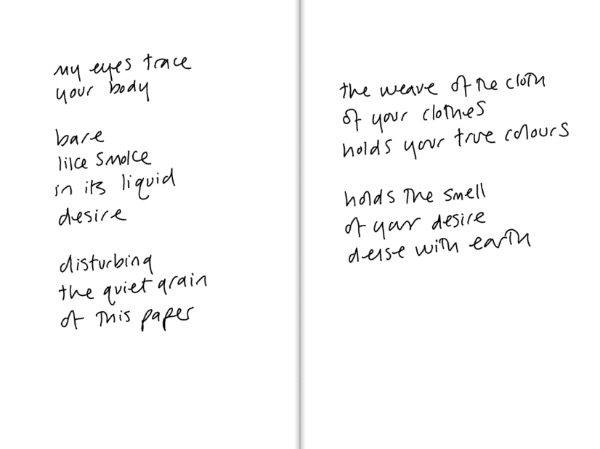 my eyes trace
your body
bare
like smoke
in its liquid
desire
disturbing
the quiet grain
of this paper
the weave of the cloth
of your clothes
holds your true colours
holds the smell
of your desire
dense with earth